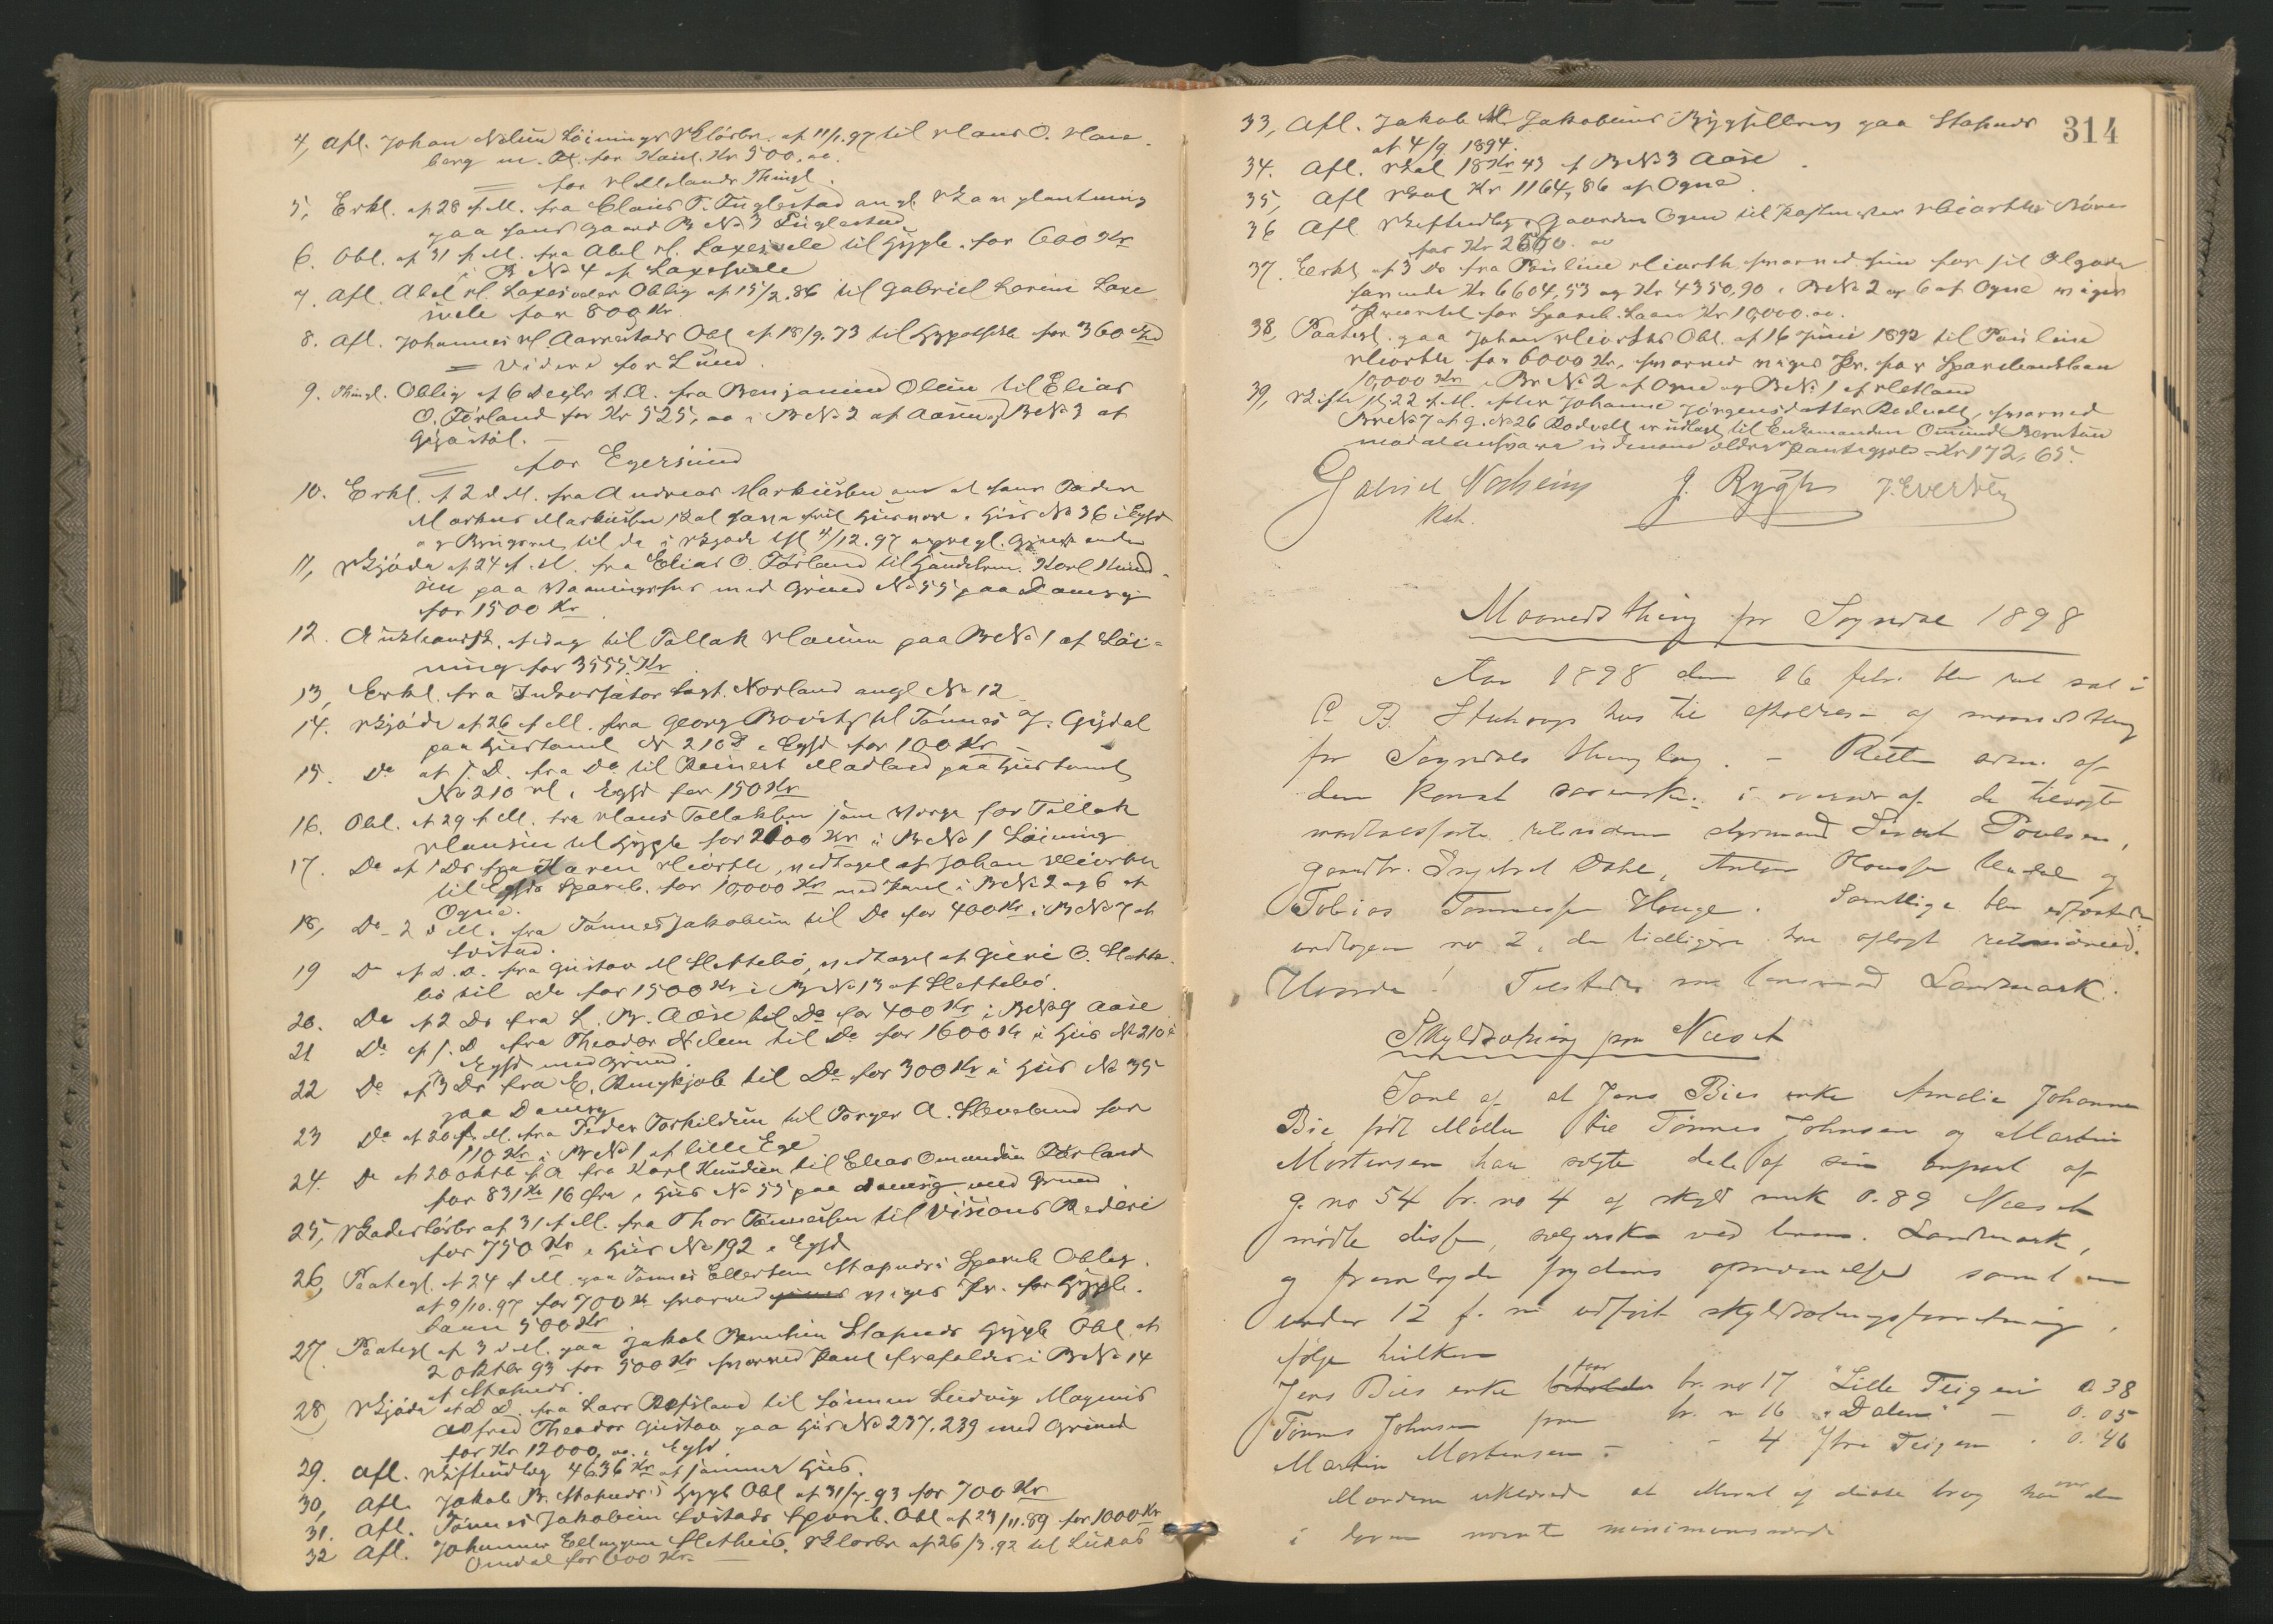 4, Afl. Johan Nilsen Löinings Skjösbr. af 11/1.97 til Hans O. Haa-
berg m. Fl. for Kaut. Kr 500,00.
= for Hetlands Thingl.
5, Erkl. af 28 f.M. fra Claus T. Fuglestad ang. Skovplantning
paa hans Gaard BNo 3 Fuglestad.
6. Obl. af 31 f.M. fra Abel H. Laxesvele til Hypb. for 600 Kr
i B No 4 af Laxesvele
7. Afl. Abel H. Laxesveles Oblig af 15/2.86 til Gabriel Larsen Laxe
svele for 800 Kr.
8. Afl. Johannes H. Aarrestads Obl af 18/9.73 til Hypothbk for 360
= Videre for Lund.
9. Thingl. Oblig af 6 Decbr f.A. fra Benjamin Olsen til Elias
O. Förland for Kr 525,00 i BNo 2 af Aasen og BNo 3 af
Gjedrstöl. —
= for Egersund
10. Erkl. af 2 d.M. fra Andreas Markussen om at hans Fader
Markus Markussen skal have frit Husvær i Hus No 36 i Egsd
11, Skjöde af 24 f.M. fra Elias O. Förland til Handelsm. Karl Knud-
sen paa Vaaningshus med Grund No 55 paa Damsg
for 1500 Kr
12. Auktionssk. af idag til Tollak Hansen paa BNo 1 af Löi-
ning for 3555 Kr
13, Erkl. fra Inkassator Sigt. Norland angl No 12
14. Skjöde af 26 f.M. fra Georg Bowitz til Tönnes J. Gydal
paa Hustomt No 210 i Egsd for 100 Kr
15. Do af s.D. fra Do til Reinert Madland paa Hustomt
No 210 H. i Egsd for 150 Kr
16. Obl. af 29 f.M. fra Hans Tollaksen som Værge for Tollak
Hansen til Hypb for 2100 Kr i BNo 1 Löining
17. Do af 1 Ds fra Karen Hiorth, vedtaget af Johan Hiorth
til Egsds Spareb. for 10,000 Kr med Pant i BNo 2 og 6 af
Ogne.
18, Do 2 d.M. fra Tönnes Jakobsen til Do for 400 Kr i BNo 7 af
Svstad.
19 Do af s.D. fra Gustav M Slettebö, vedtaget af Guri O. Slette-
bö til Do for 1500 Kr i BNo 13 af Slettebö.
20. Do af 2 Ds fra L. B. Aase til Do for 400 Kr i BNo 9 Aase
21 Do af s.D. fra Theodor Nilsen til Do for 1600 Kr i Hus No 210 i
Egsd med Grund.
22 Do af 3 Ds fra E. Ringkjöb til Do for 300 Kr i Hus No 35
paa Damsg
23 Do af 20 f.M. fra Peder Torkildsen til Torger A. Sleveland for
110 Kr i BNo 1 af Lille Ege
24. Do af 20 oktb f.A fra Karl Knudsen til Elias Omundsen Förland
for 831 Kr 16 Öre i Hus No 55 paa Damsg med Grund
25, Skadeslösbr af 31 f.M. fra Thor Tönnessen til Visions Rederi
for 750 Kr i Hus No 192 i Egsd
26, Paategl. af 24 f.M. paa Tönnes Ellertsen Stapneds Spareb Oblig.
af 9/10.97 for 700 Kr hvorved viges Pr. for Hypb.
laan 500 Kr
27, Paategl af 3 d.M. paa Jakob Berntsen Stapneds Hypb Obl af
2 oktbr 93 for 500 Kr hvorved Pant frafaldes i BNo 14
af Stapneds.
28) Skjöde af D.D. fra Lars Refsland til Sönnen Ludvig Magnus
Alfred Theodor Gustav paa Hus No 237, 239 med Grund
for Kr 12000,00 i Egsd.
29. Afl. Skifteudlæg 4636 Kr af samme Hus.
30, Afl. Jakob B. Stapneds Hypb Obl af 31/7.93 for 700 Kr
31. Afl. Tönnes Jakobsen Svstads Spareb. Obl af 23/11.89 for 1000 Kr
32 Afl. Johannes Ellingsen Slettebös Sklösbr af 26/3.92 til Lukas
Omdal for 600 Kr. —
314
33, Afl. Jakob M. Jakobsens Bygselbrev paa Stapneds
af 4/9 1894.
34. Afl. Skal 18 Kr 43 af BNo 3 Aase
35, Afl Skal Kr 1164,86 af Ogne.
36 Afl Skifteudlæg i Gaarden Ogne til
for Kr 2600.00
37. Erkl af 3 Ds fra Pauline Hiorth hvorved hun for sit
havende Kr 6604,53 og Kr 4350,90 i BNo 2 og 6 af Ogne viger
Prioritet for Spareb. Laan Kr 10,000.00.
38, Paategl. paa Johan Hiorths Obl. af 16 Juni 1892 til Pauline
Hiorth for 6000 Kr, hvorved viges Pr. for Sparebanklaan
10,000 Kr i Br No 2 af Ogne og BNo 1 af Hetland
39, Skifte pl. 22 f.M. efter Johanne Jörgensdatter Rodvelt, hvorved
Br No 7 af g. No 26 Rodvelt er udlagt til Enkemanden Omund Berntsen
mod at ansvare Udenom ældre Pantegjæld Kr 172,65.
Gabriel Nesheim J. Rygh J. Evertsen
Kst.
Maanedsthing for Sogndal 1898
Aar 1898 den 16 febr. blev ret sat i
P. B. Stuhaugs hus til afholdelse af maanedsthing
for Sogndals thinglag. – Retten adm. af
den konst sorenskr. i overvær af de tilsagte
mandtalsförte retsvidner styrmand Sivert Poulsen,
gaardbr. Ingebret Dahl, Anton Hansen Underdal og
Tobias Tönnessen Hauge. Samtlige blev edfæstede
undtagen no 2, da tidligere har aflagt retsvidneed.
Tilstede var lensmand Landmark.
Skyldsætning paa Næset
Som af at Jens Bies enke Amalie Johanne
Bie, født Møller til Tönnes Johnsen og Martin
Mortensen har solgte dele af sin anpart af
g. no 54 br. no 4 af skyld mark 0.89 Næset
mödte disse, sælgerske ved lensm. Landmark,
og fremlagde fogdens opnævnelse samt en
under 12 f. m. udfört skyldsætningsforretning,
ifölge hvilken
Jens Bies enke beholder faar br. no 17 "Lille Teigen" 0.38
Tönnes Johnsen faar br. n 16 "Dalen" – 0.05
Martin Mortensen – – 4 Ytre Teigen . 0.46
Mændene erklærede at hvert af disse brug har over den
i loven nævnte minimumsværdi